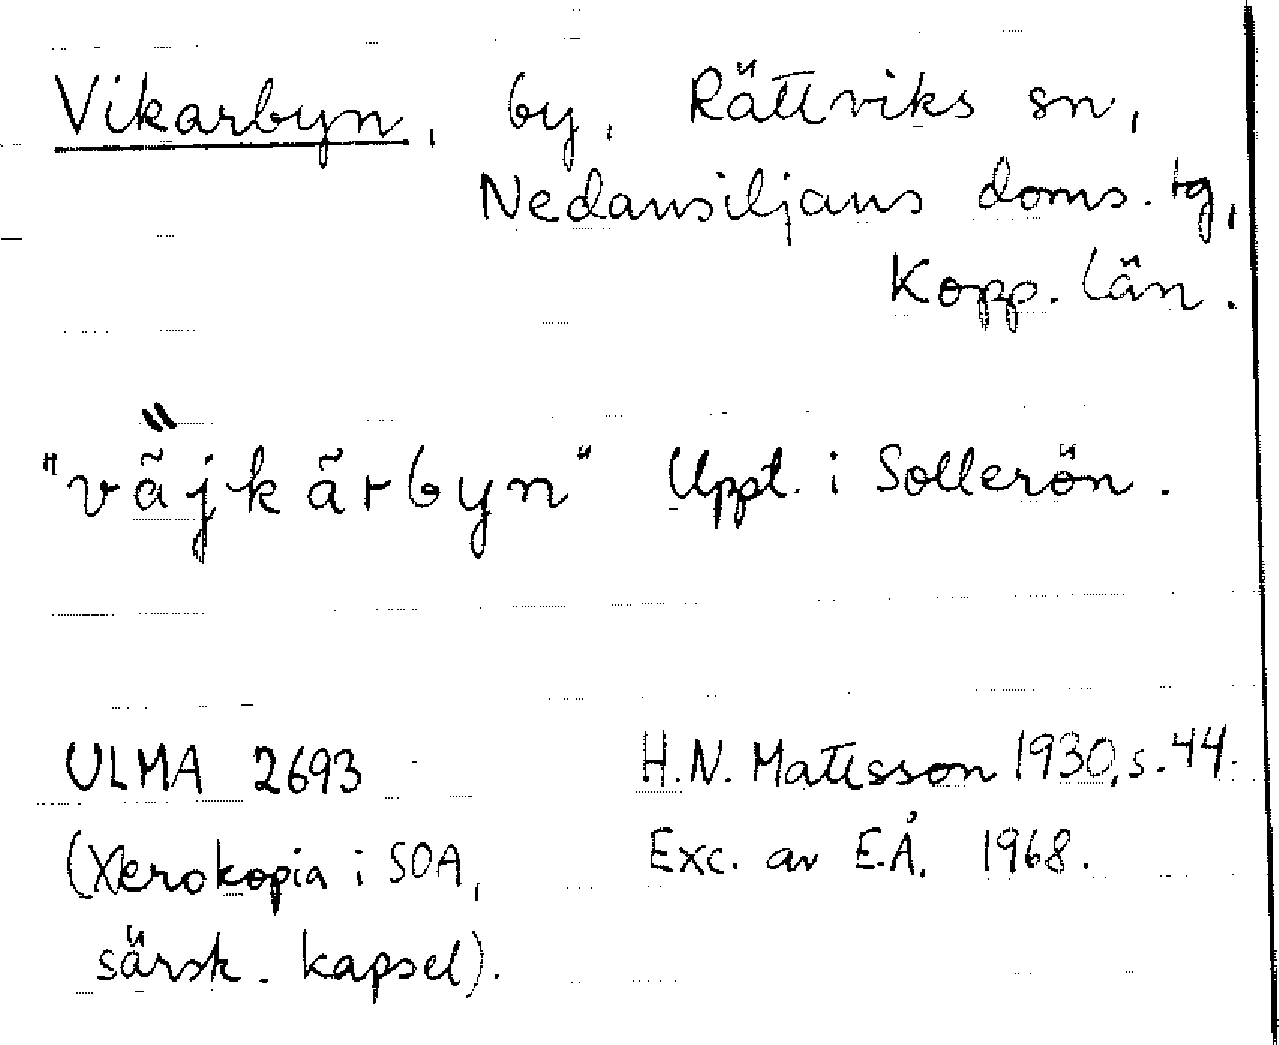 Vikarbyn, by, Rättviks sn,
Nedansiljans doms. tg,
Kopp. län.
"vã̏jkãrbyn" Uppt. i Sollerön.
ULMA 2693 H.N. Mattsson 1930, s. 44.
(Xerokopia i SOA, Exc. av E.Å. 1968.
särsk. kapsel).